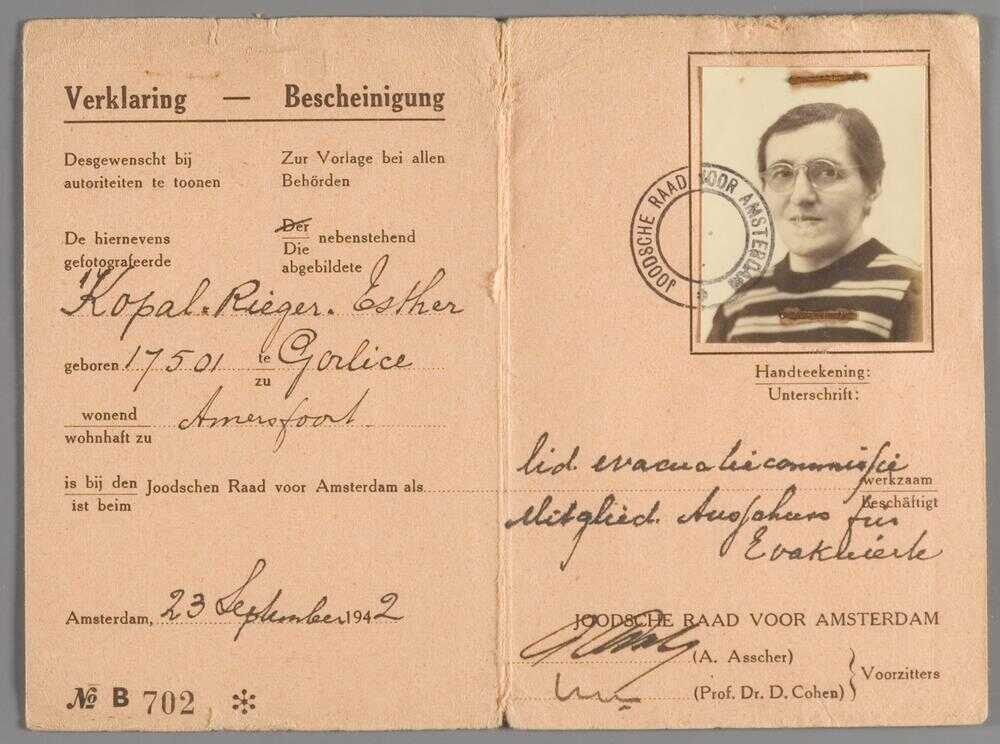 Verklaring — Bescheinigung
Desgewenscht bij
autoriteiten te toonen
Zur Vorlage bei allen
Behörden
De hiernevens
gefotografeerde
Der
Die
nebenstehend
abgebildete
Kopal-Rieger. Esther
geboren 17 5 01 te
zu
Gorlice
wonend
wohnhaft zu
Amersfoort
is bij den
ist beim
Joodschen Raad voor Amsterdam als
Amsterdam, 23 September 1942
№ B 702
JOODSCHE RAAD VOOR AMSTERDAM
Handteekening:
Unterschrift:
lid evacuatiecommissie
werkzaam
beschäftigt
Mitglied Ausschuss für
Evakuierte
JOODSCHE RAAD VOOR AMSTERDAM
(A. Asscher)
(Prof. Dr. D. Cohen)
Voorzitters